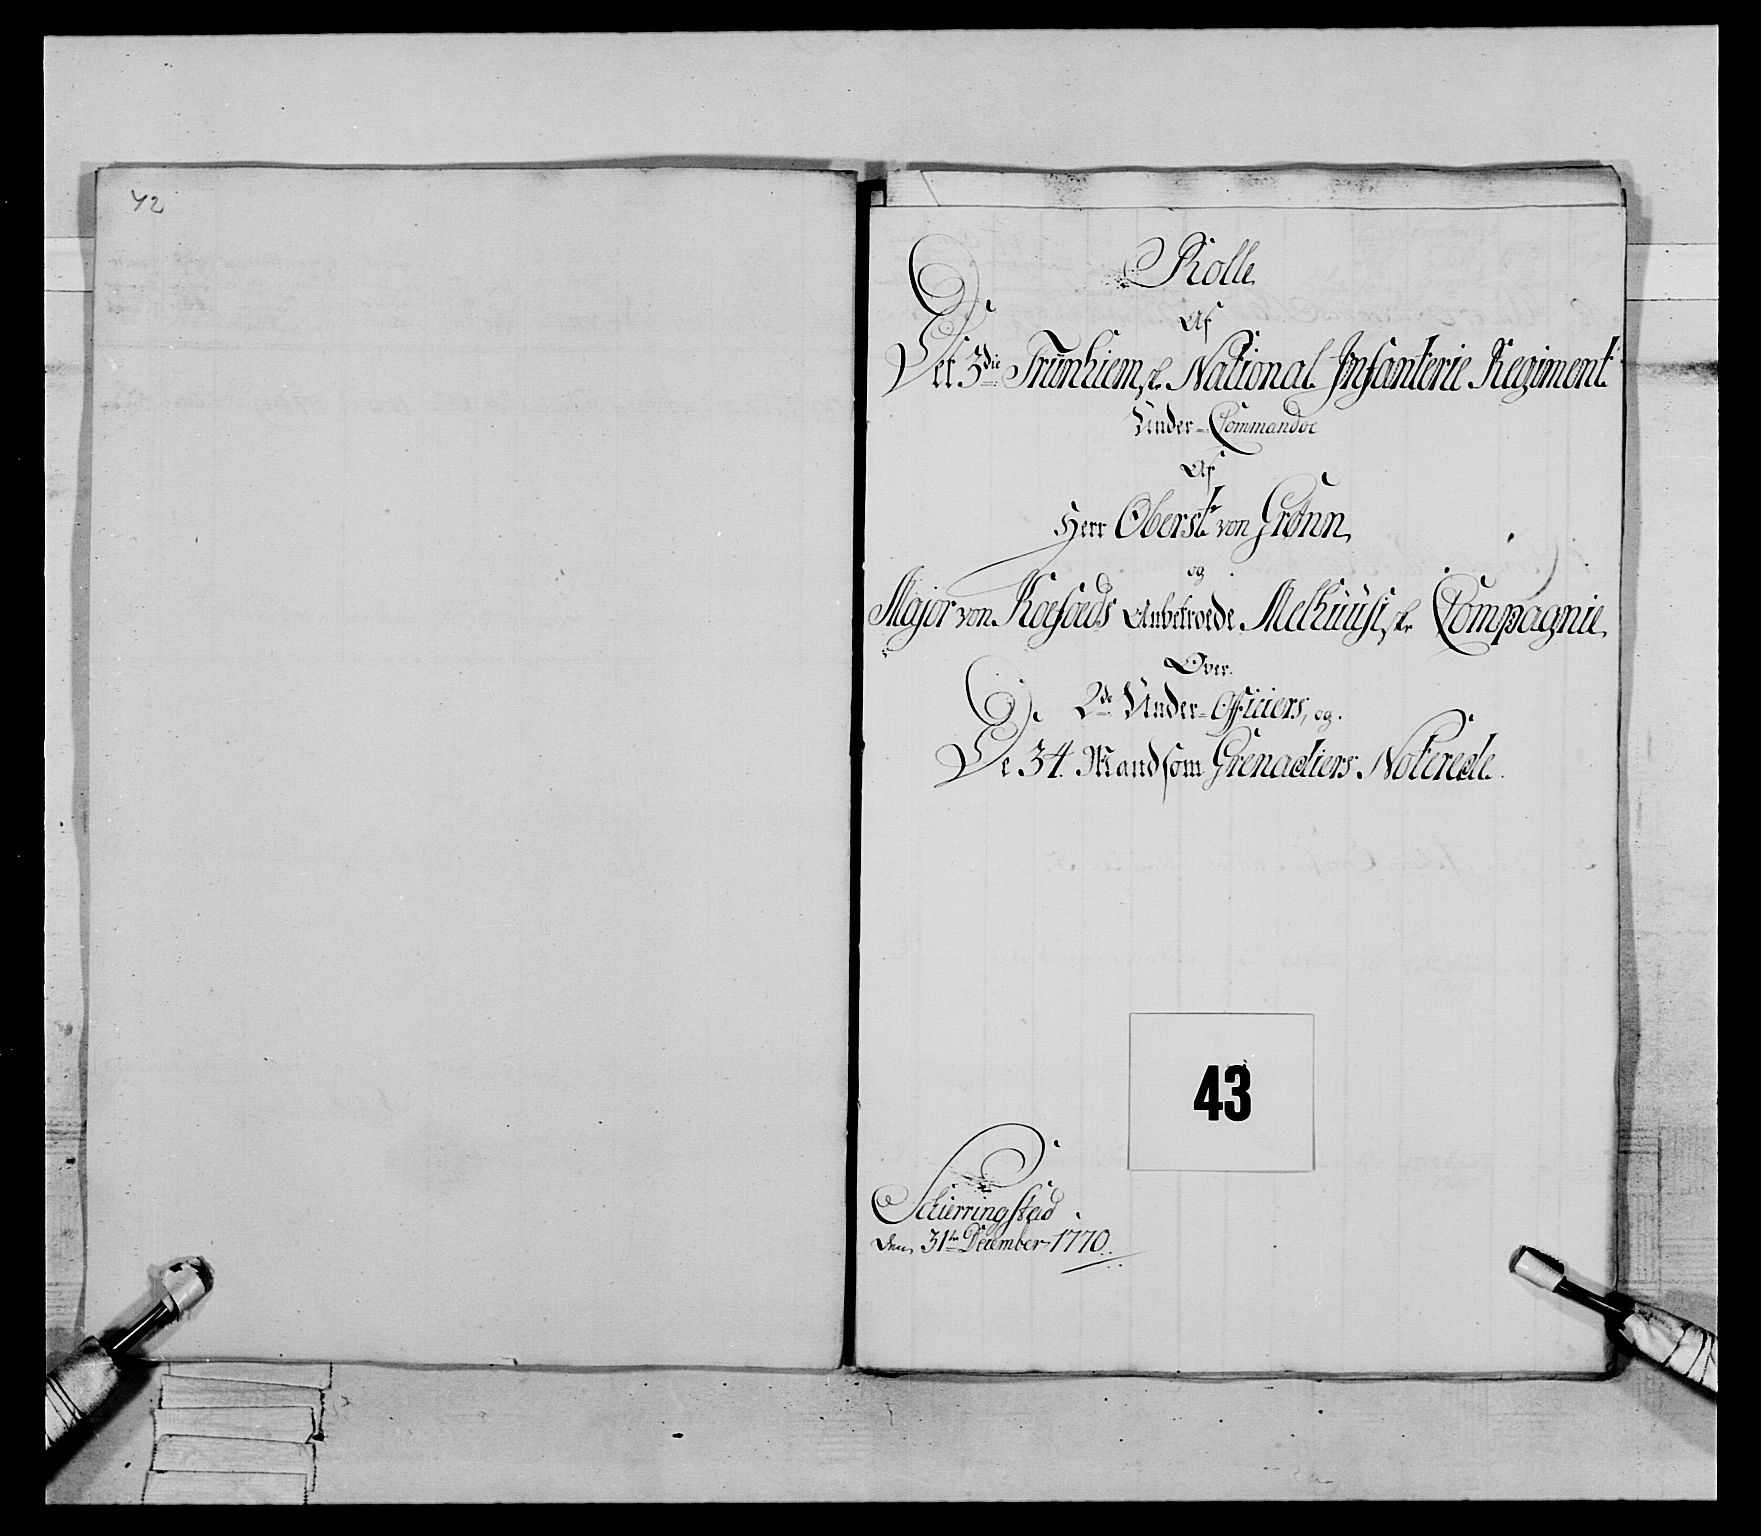 42
Rolle
Af
Det 3die Trünhiemske National Infanterie Regiment
Under-Commandoe
Af
Herr Oberste von Grønn
og
Major von Anbetroede Melhuusiske Compagnie
Over
De 2de Under-Officiers, og
De 34 Mand som Grenadiers Noterede
43
Schierringstad
den 31te December 1770.